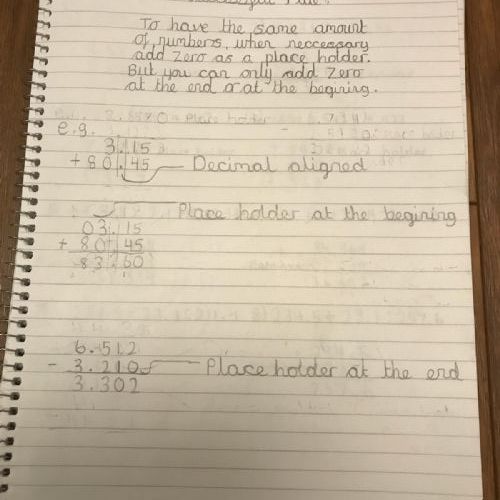 To have the same amount
of numbers, when neccessary
add zero as a place holder.
But you can only add zero
at the end or at the begining.
e.g.
3.15
+ 80.45 Decimal aligned
Place holder at the begining
03.15
+ 80.45
83.60
6.512
- 3.210 Place holder at the end
3.302